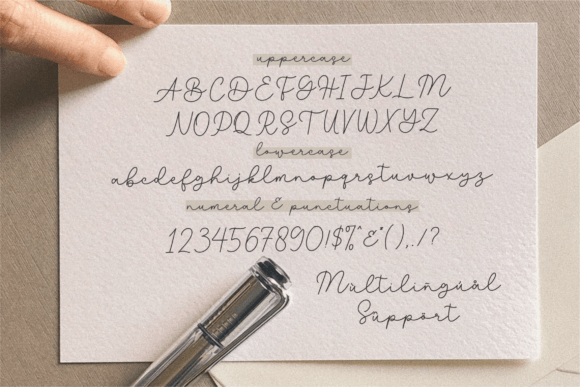 uppercase
ABCDEFGHIJKLM
NOPQRSTUVWXYZ
lowercase
abcdefghijklmnopqrstuvwxyz
numeral & punctuations
1234567890!$%^&*(),./?
Mùltilingúál
Süppört